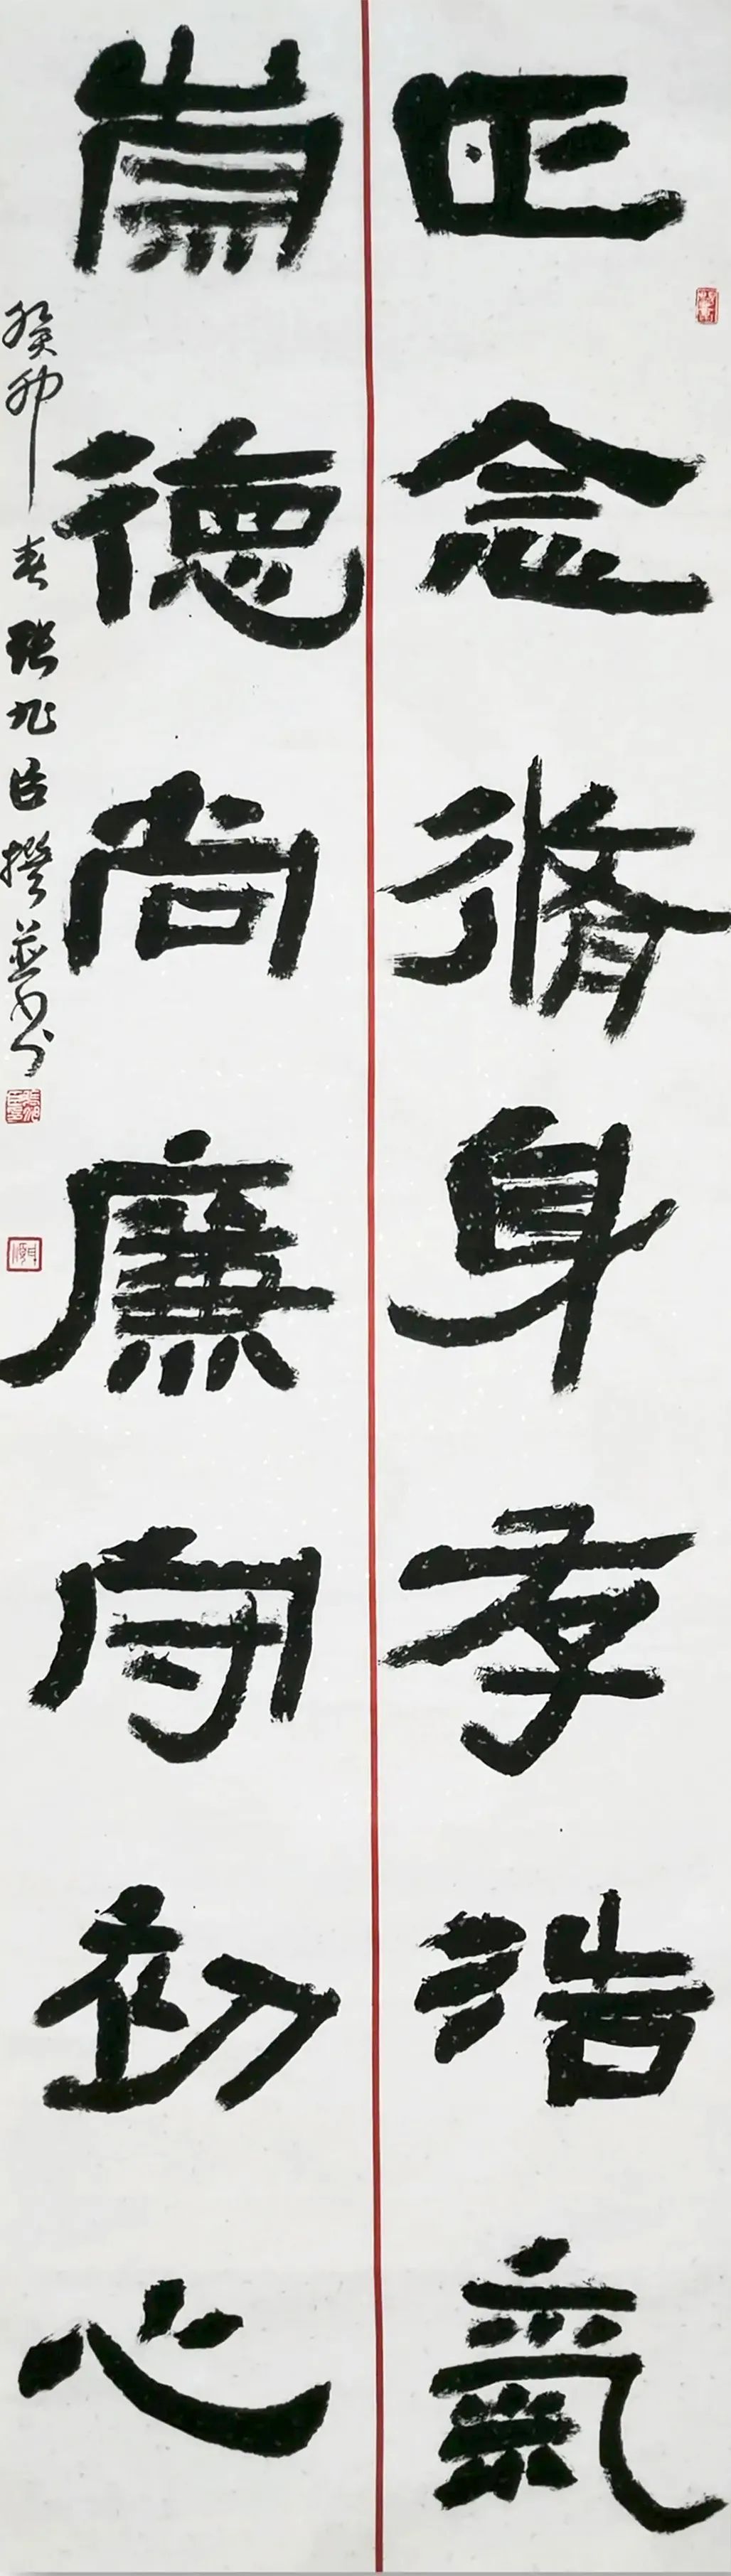 正念脩身存浩氣
崇德尚廉守初心
癸卯春張旭臣撰並書